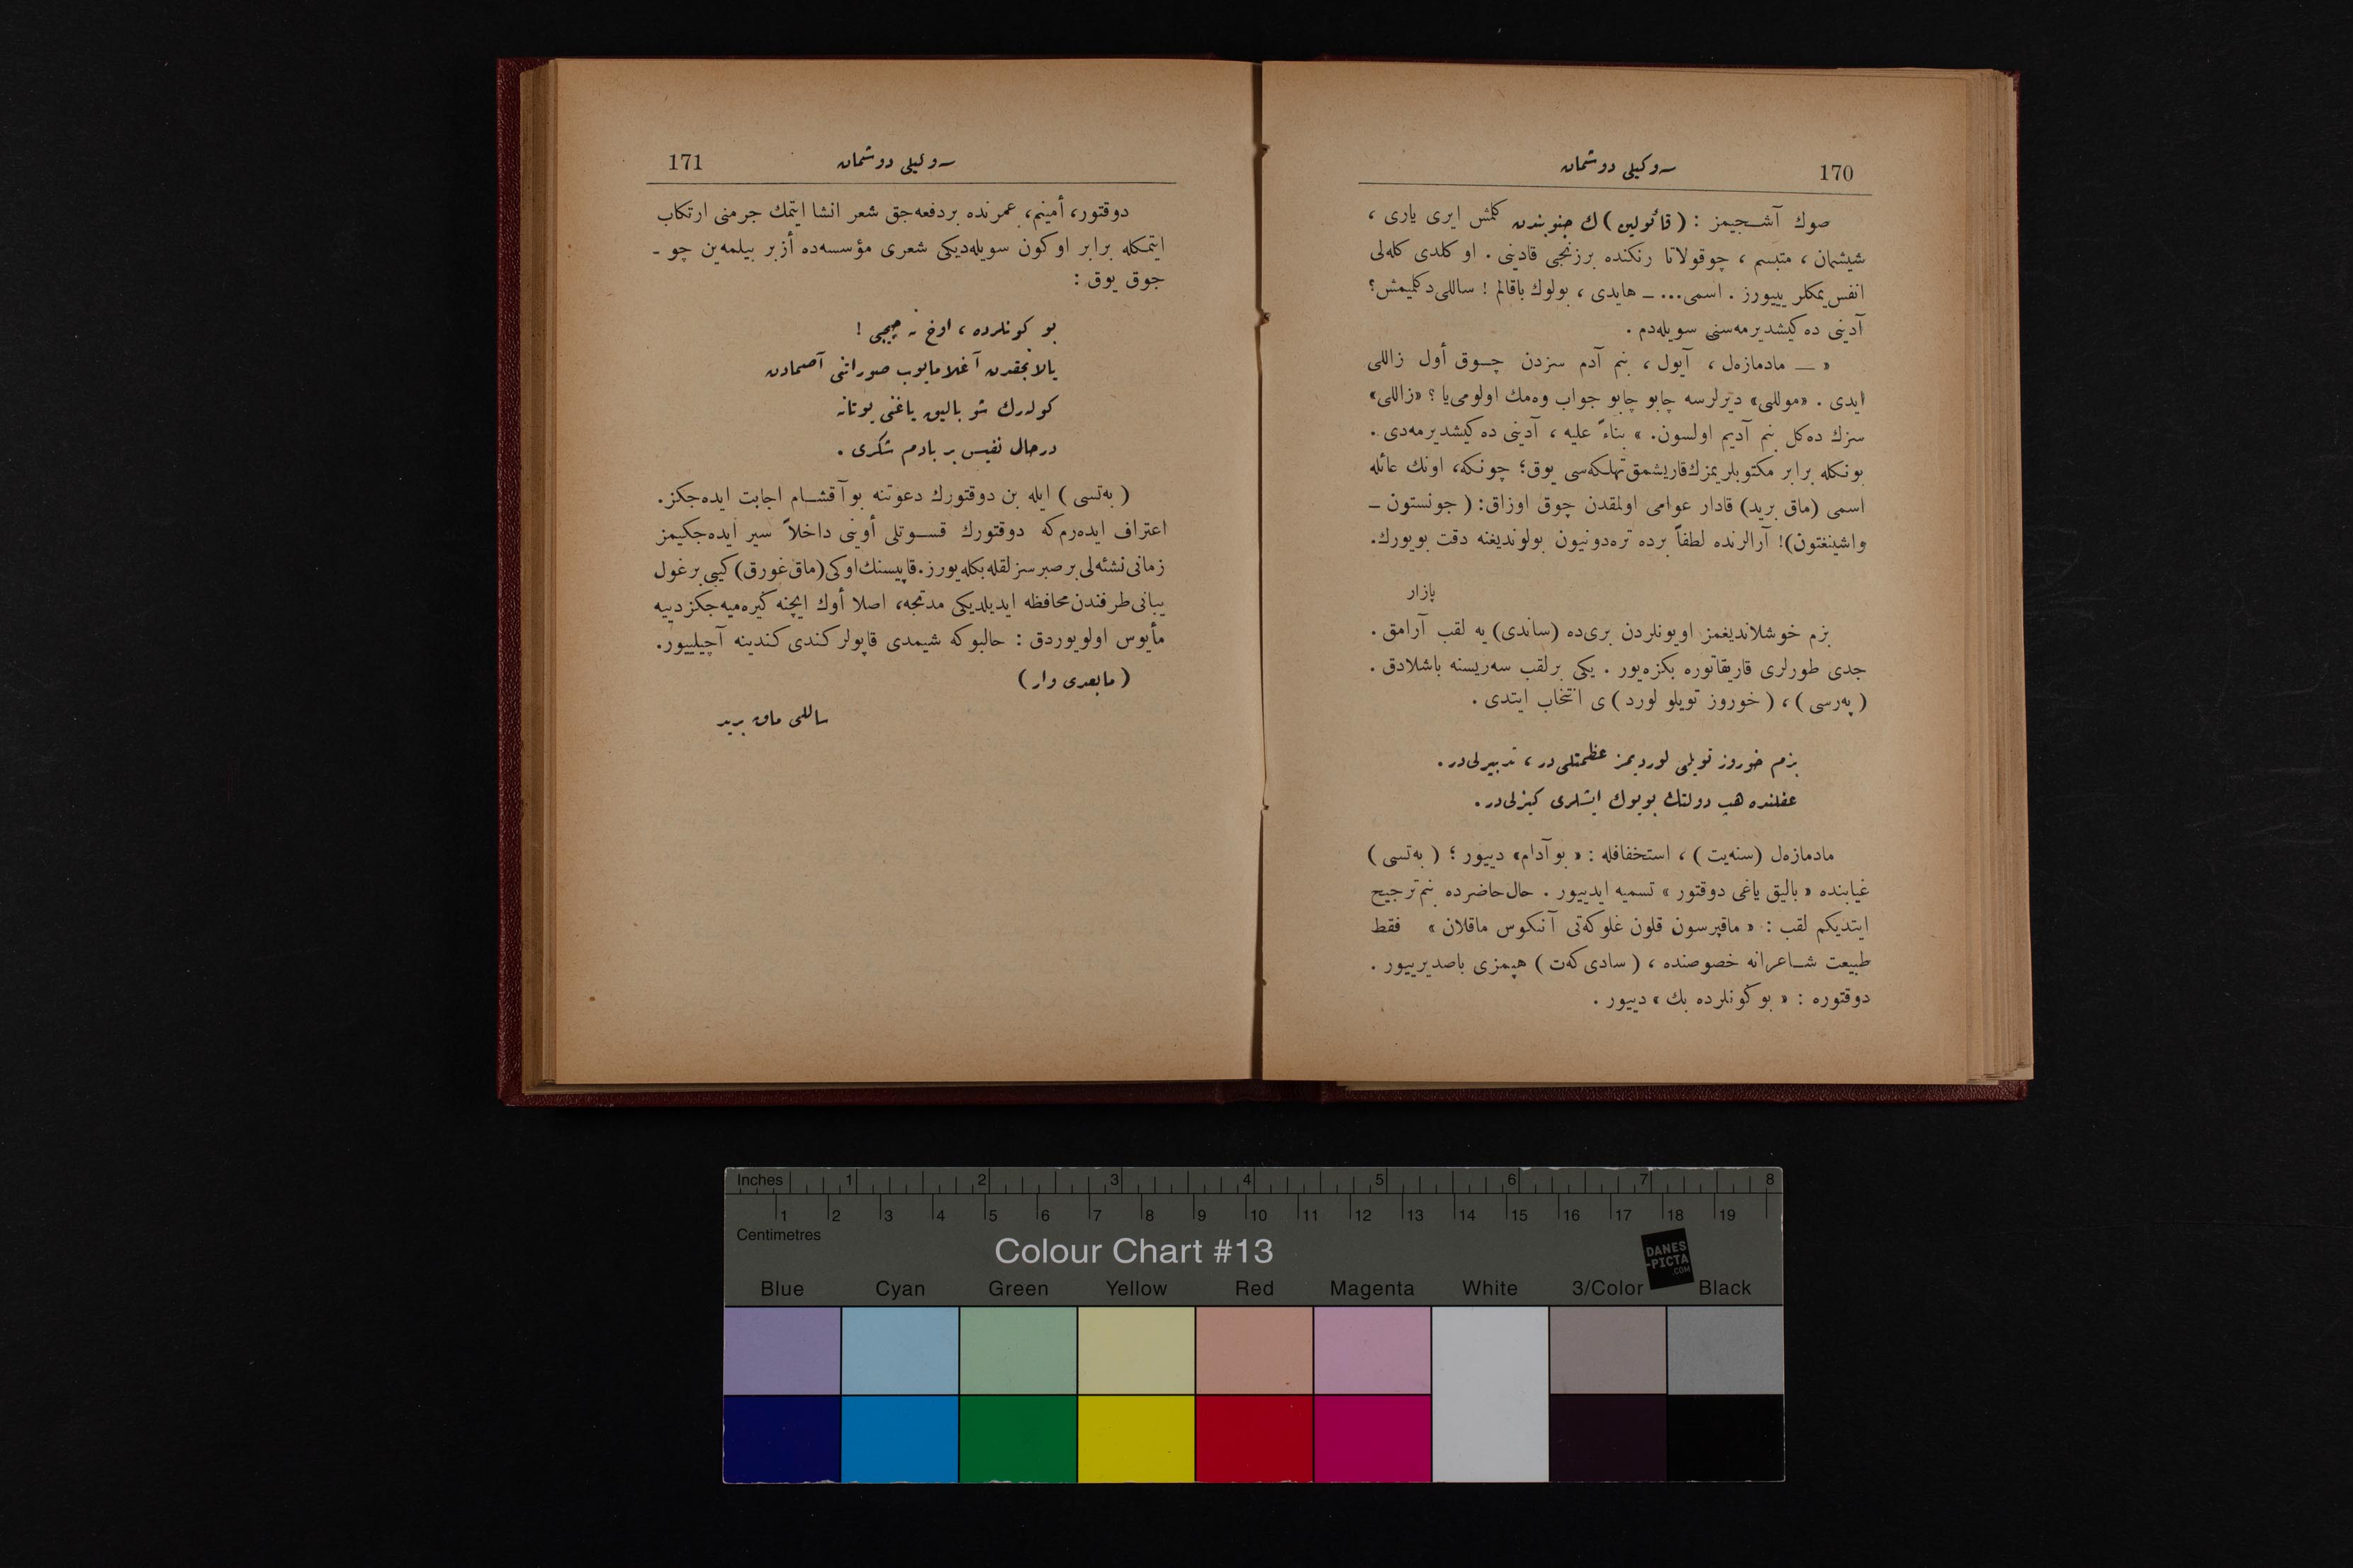 170
سه‌وكیلی دوشمان
صوك آشـجیمز : (قانولین) ك جنوبندن كلمش ایری یاری ،
شیشمان ، متبسم ، چوقولاتا رنكنده برزنجی قادینی . او كلدی كله‌لی
انفس یمكلر ییيورز . اسمی... ــ هایدی ، بولوك باقالم ! ساللی دكلیمش؟
آدینی ده كیشدیرمه‌سنی سویله‌دم .
« — مادمازه‌ل ، آیول ، بنم آدم سزدن چـوق أول زاللی
ایدی . «موللی» دیرلرسه چابو چابو جواب وه‌مك اولومی‌یا ؟ «زاللی»
سزك ده‌كل بنم آدیم اولسون. » بناءً علیه ، آدینی ده كیشدیرمه‌دی .
بونكله برابر مكتوبلریمزك قاریشمق تهلكه‌سی یوق؛ چونكه، اونك عائله
اسمی (ماق برید) قادار عوامی اولمقدن چوق اوزاق: (جونستون ــ
واشینغتون)! آرالرنده لطفاً برده تره‌دونیون بولوندیغنه دقت بویورك.
پازار
بزم خوشلاندیغمز اویونلردن بری‌ده (ساندی) یه لقب آرامق .
جدی طورلری قاریقاتوره بكزه‌یور . یكی برلقب سه‌ریسنه باشلادق .
(په‌رسی) ، (خوروز تویلو لورد) ی انتخاب ایتدی .
بزم خوروز تویلی لوردیمز عظمتلی‌در ، تدبیرلی‌در .
عقلنده هپ دولتك بویوك ایشلری كیزلی‌در .
مادمازه‌ل (سنه‌یت) ، استخفافله : « بو آدام» دییور ؛ (به‌تسی)
غیابنده « بالیق یاغی دوقتور » تسمیه ایدییور . حال حاضرده بنم ترجیح
ایتدیكم لقب : « ماقپرسون قلون غلوكه‌تی آنكوس ماقلان » فقط
طبیعت شـاعرانه خصوصنده ، (سادی كه‌ت) هپمزی باصدیرییور .
دوقتوره : « بوكونلرده بك » دییور .
سه‌وكیلی دوشمان
171
دوقتور، أمینم، عمرنده بردفعه‌جق شعر انشا ایتمك جرمنی ارتكاب
ایتمكله برابر اوكون سویله‌دیكی شعری مؤسسه‌ده أزبر بیلمه‌ین چو ــ
جوق یوق :
بو كونلرده ، اوخ نه چیچی !
یالانجقدن آغلامایوب صوراتنی آصمادن
كوله‌رك شو بالیق یاغنی یوتانه
درحال نفیس بر بادم شكری .
(به‌تسی) ایله بن دوقتورك دعوتنه بو آقشـام اجابت ایده‌جكز.
اعتراف ایده‌رم‌كه دوقتورك قسـوتلی أوینی داخلاً سیر ایده‌جكیمز
زمانی نشئه‌لی برصبرسزلقله بكله‌یورز. قاپیسنك اوكی (ماق‌غورق) كیبی برغول
یبانی طرفندن محافظه ایدیلدیكی مدتجه، اصلا أوك ایچنه كیره‌میه‌جكز دییه
مأیوس اولویوردق : حالبوكه شیمدی قاپولر كندی كندینه آچیلییور.
(مابعدی وار)
ساللی ماق برید
Inches 1 2 3 4 5 6 7 8
1 2 3 4 5 6 7 8 9 10 11 12 13 14 15 16 17 18 19
Centimetres
Colour Chart #13
DANES
-PICTA
.COM
Blue Cyan Green Yellow Red Magenta White 3/Color Black